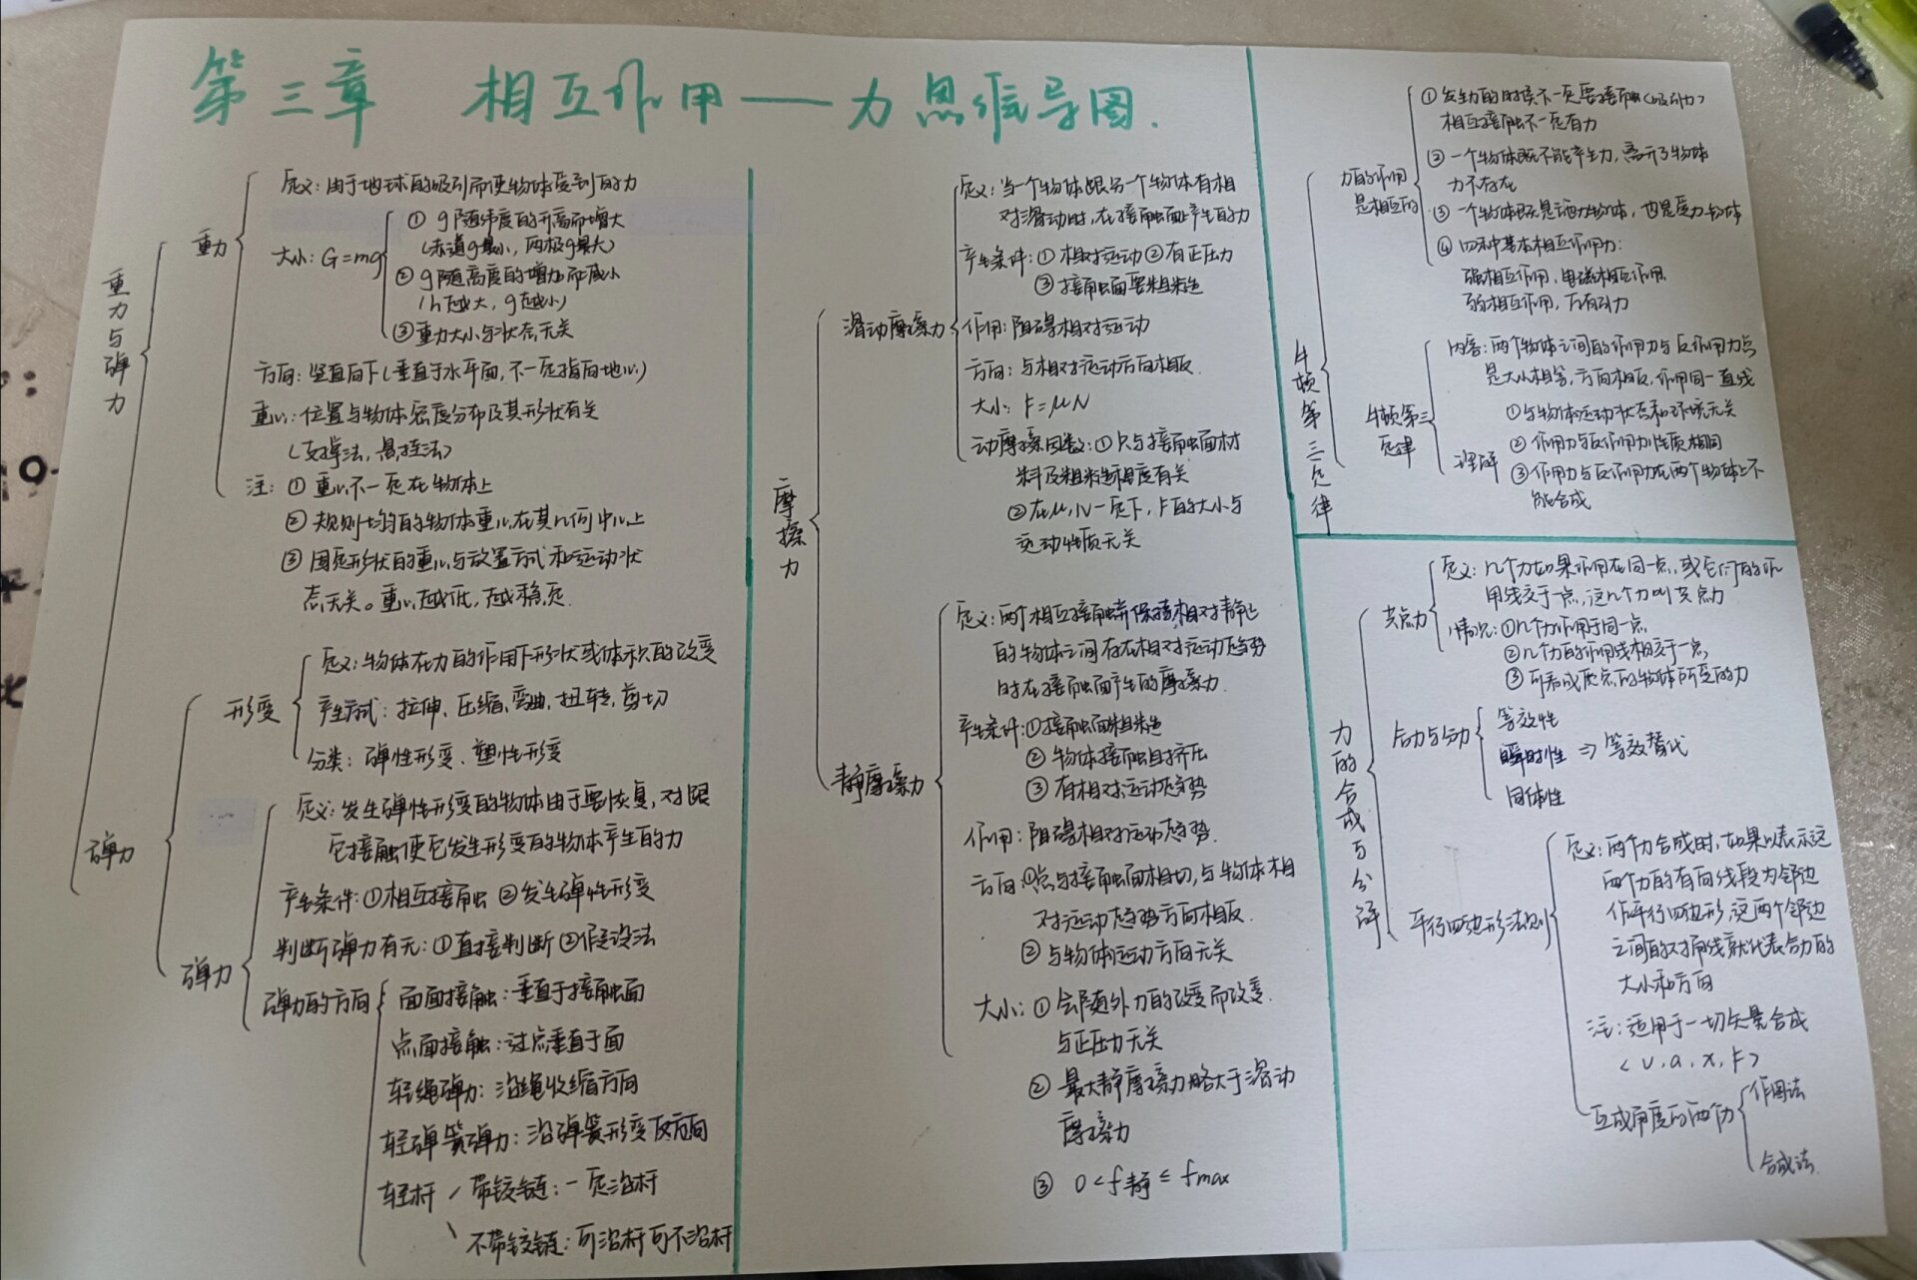 第三章 相互作用——力思维导图.
重力与弹力
重力
定义:由于地球的吸引而使物体受到的力
大小:G=mg
① g随纬度的升高而增大
(赤道g最小,两极g最大)
② g随高度的增加而减小
(h越大,g越小)
③重力大小与状态无关
方向:竖直向下(垂直于水平面,不一定指向地心)
重心:位置与物体密度分布及其形状有关
(支撑法,悬挂法)
注:① 重心不一定在物体上
② 规则均匀的物体重心在其几何中心上
③ 固定形状的重心与放置方式和运动状
态无关。重心越低,越稳定.
弹力
形变
定义:物体在力的作用下形状或体积的改变
产生方式:拉伸、压缩,弯曲,扭转,剪切
分类:弹性形变、塑性形变
弹力
定义:发生弹性形变的物体由于要恢复,对跟
它接触使它发生形变的物体产生的力
产生条件:①相互接触 ②发生弹性形变
判断弹力有无:①直接判断 ②假设法
弹力的方向
面面接触:垂直于接触面
点面接触:过点垂直于面
轻绳弹力:沿绳收缩方向
轻弹簧弹力:沿弹簧形变反方向
轻杆
带铰链:一定沿杆
不带铰链:可沿杆可不沿杆
摩擦力
滑动摩擦力
定义:当一个物体跟另一个物体有相
对滑动时,在接触面上产生的力
产生条件:① 相对运动 ② 有正压力
③ 接触面要粗糙
作用:阻碍相对运动
方向:与相对运动方向相反.
大小:F=μN
动摩擦因数:① 只与接触面材
料及粗糙程度有关
②在μ,N一定下,F的大小与
运动性质无关
静摩擦力
定义:两个相互接触并保持相对静止
的物体之间存在相对运动趋势
时在接触面产生的摩擦力.
产生条件:①接触面粗糙
② 物体接触且挤压
③ 有相对运动趋势
作用:阻碍相对运动趋势.
方向:①总与接触面相切,与物体相
对运动趋势方向相反.
② 与物体运动方向无关
大小:① 会随外力的改变而改变.
与正压力无关
② 最大静摩擦力略大于滑动
摩擦力
③ 0<f静≤fmax
牛顿第三定律
力的作用
是相互的
① 发生力的时候不一定要接触(吸引力)
相互接触不一定有力
② 一个物体既不能产生力,离开了物体
力不存在
③ 一个物体既是施力物体,也是受力物体
④ 四种基本相互作用力:
强相互作用,电磁相互作用
弱相互作用,万有引力
牛顿第三
定律
内容:两个物体之间的作用力与反作用力总
是大小相等,方向相反,作用同一直线
理解
①与物体运动状态和环境无关
② 作用力与反作用力性质相同
③作用力与反作用力在两个物体上不
能合成
力的合成与分解
共点力
定义:几个力如果作用在同一点,或它们的作
用线交于一点,这几个力叫共点力
情况:①几个力作用于同一点
②几个力的作用线相交于一点,
③ 可看成质点的物体所受的力
合力与分力
等效性
瞬时性 ⇒ 等效替代
同体性
平行四边形法则
定义:两个力合成时,如果以表示这
两个力的有向线段为邻边
作平行四边形,这两个邻边
之间的对角线就代表合力的
大小和方向
注:适用于一切矢量合成
<v,a,x,F>
互成角度的两个力
作图法
合成法.